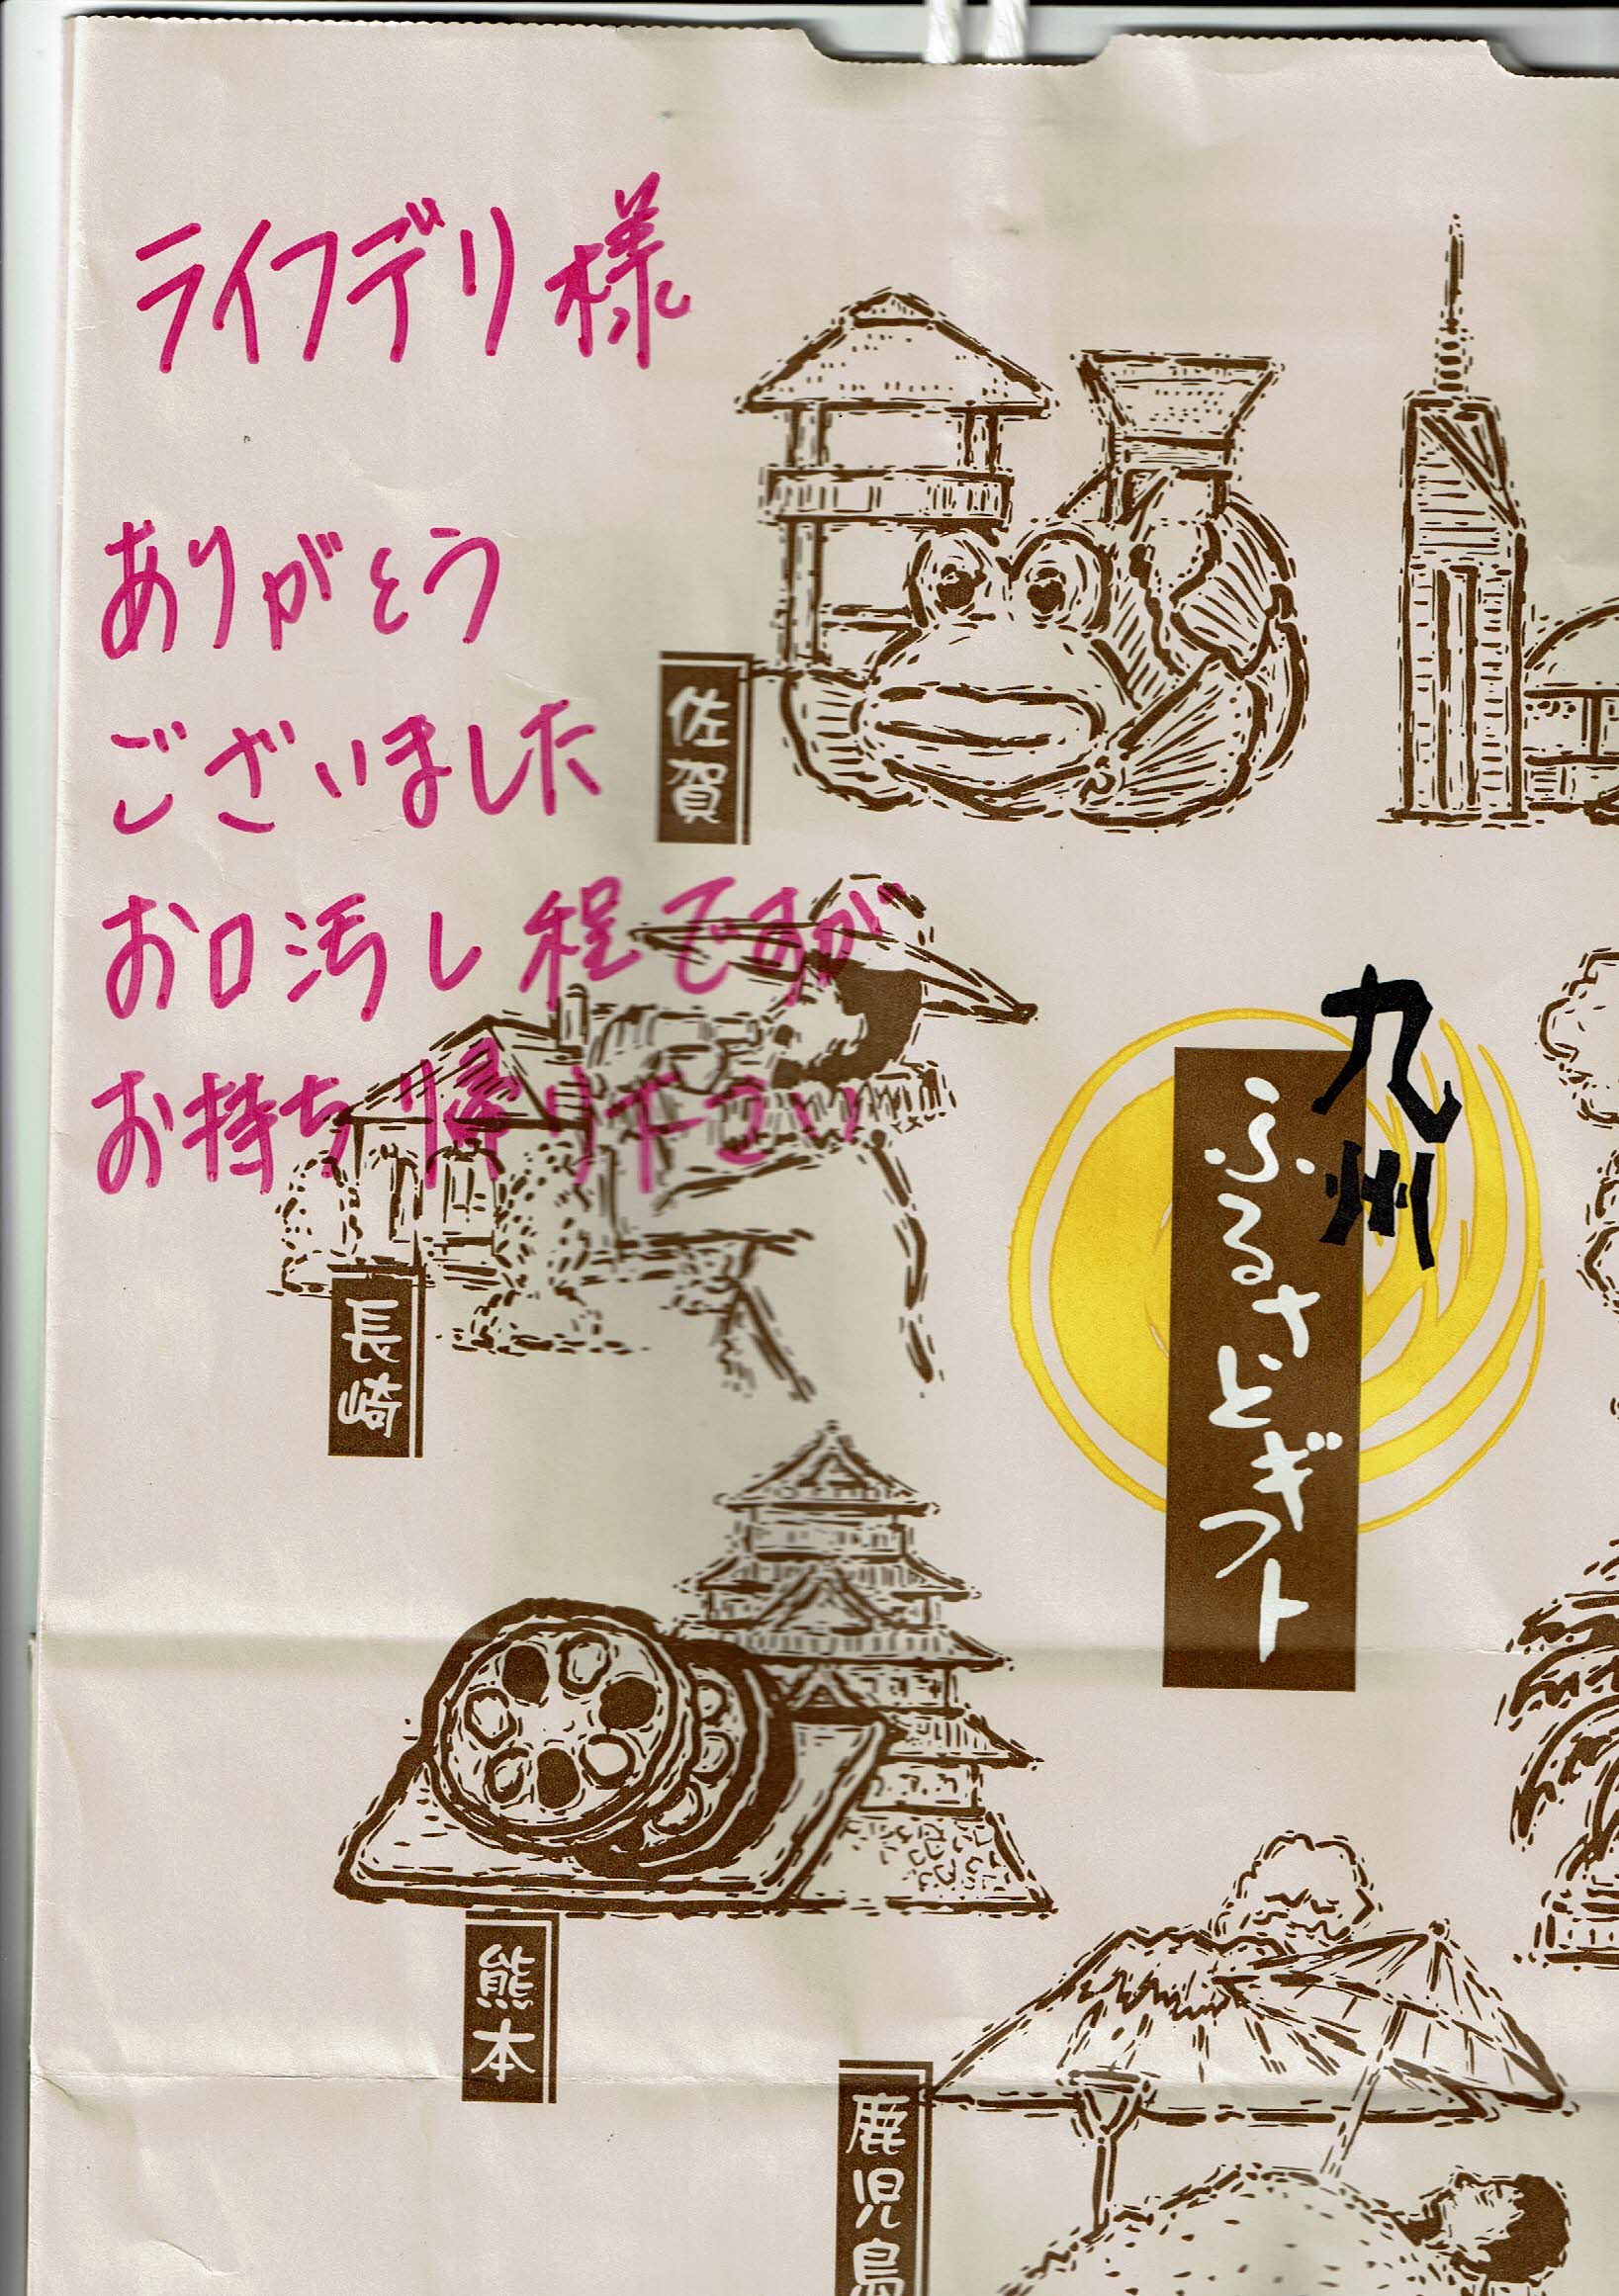 ライフデリ様
ありがとう
ございました
お口汚し程ですが
お持ち帰り下さい
佐賀
長崎
九州
ふるさとギフト
熊本
鹿児島